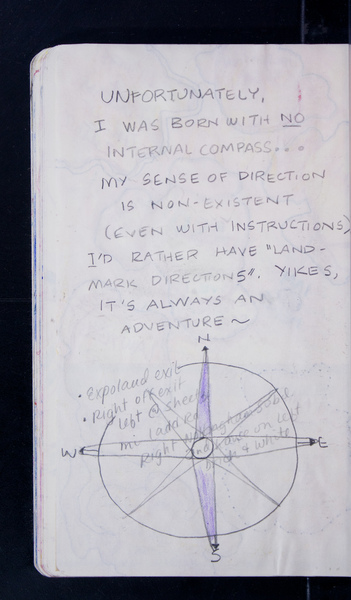 UNFORTUNATELY,
I WAS BORN WITH NO
INTERNAL COMPASS...
MY SENSE OF DIRECTION
IS NON-EXISTENT
(EVEN WITH INSTRUCTIONS)
I'D RATHER HAVE "LAND-
MARK DIRECTIONS". YIKES,
IT'S ALWAYS AN
ADVENTURE ~
N
• Expoland exit
• Right off exit
Left @
Right
on left
brick & white
W
E
S